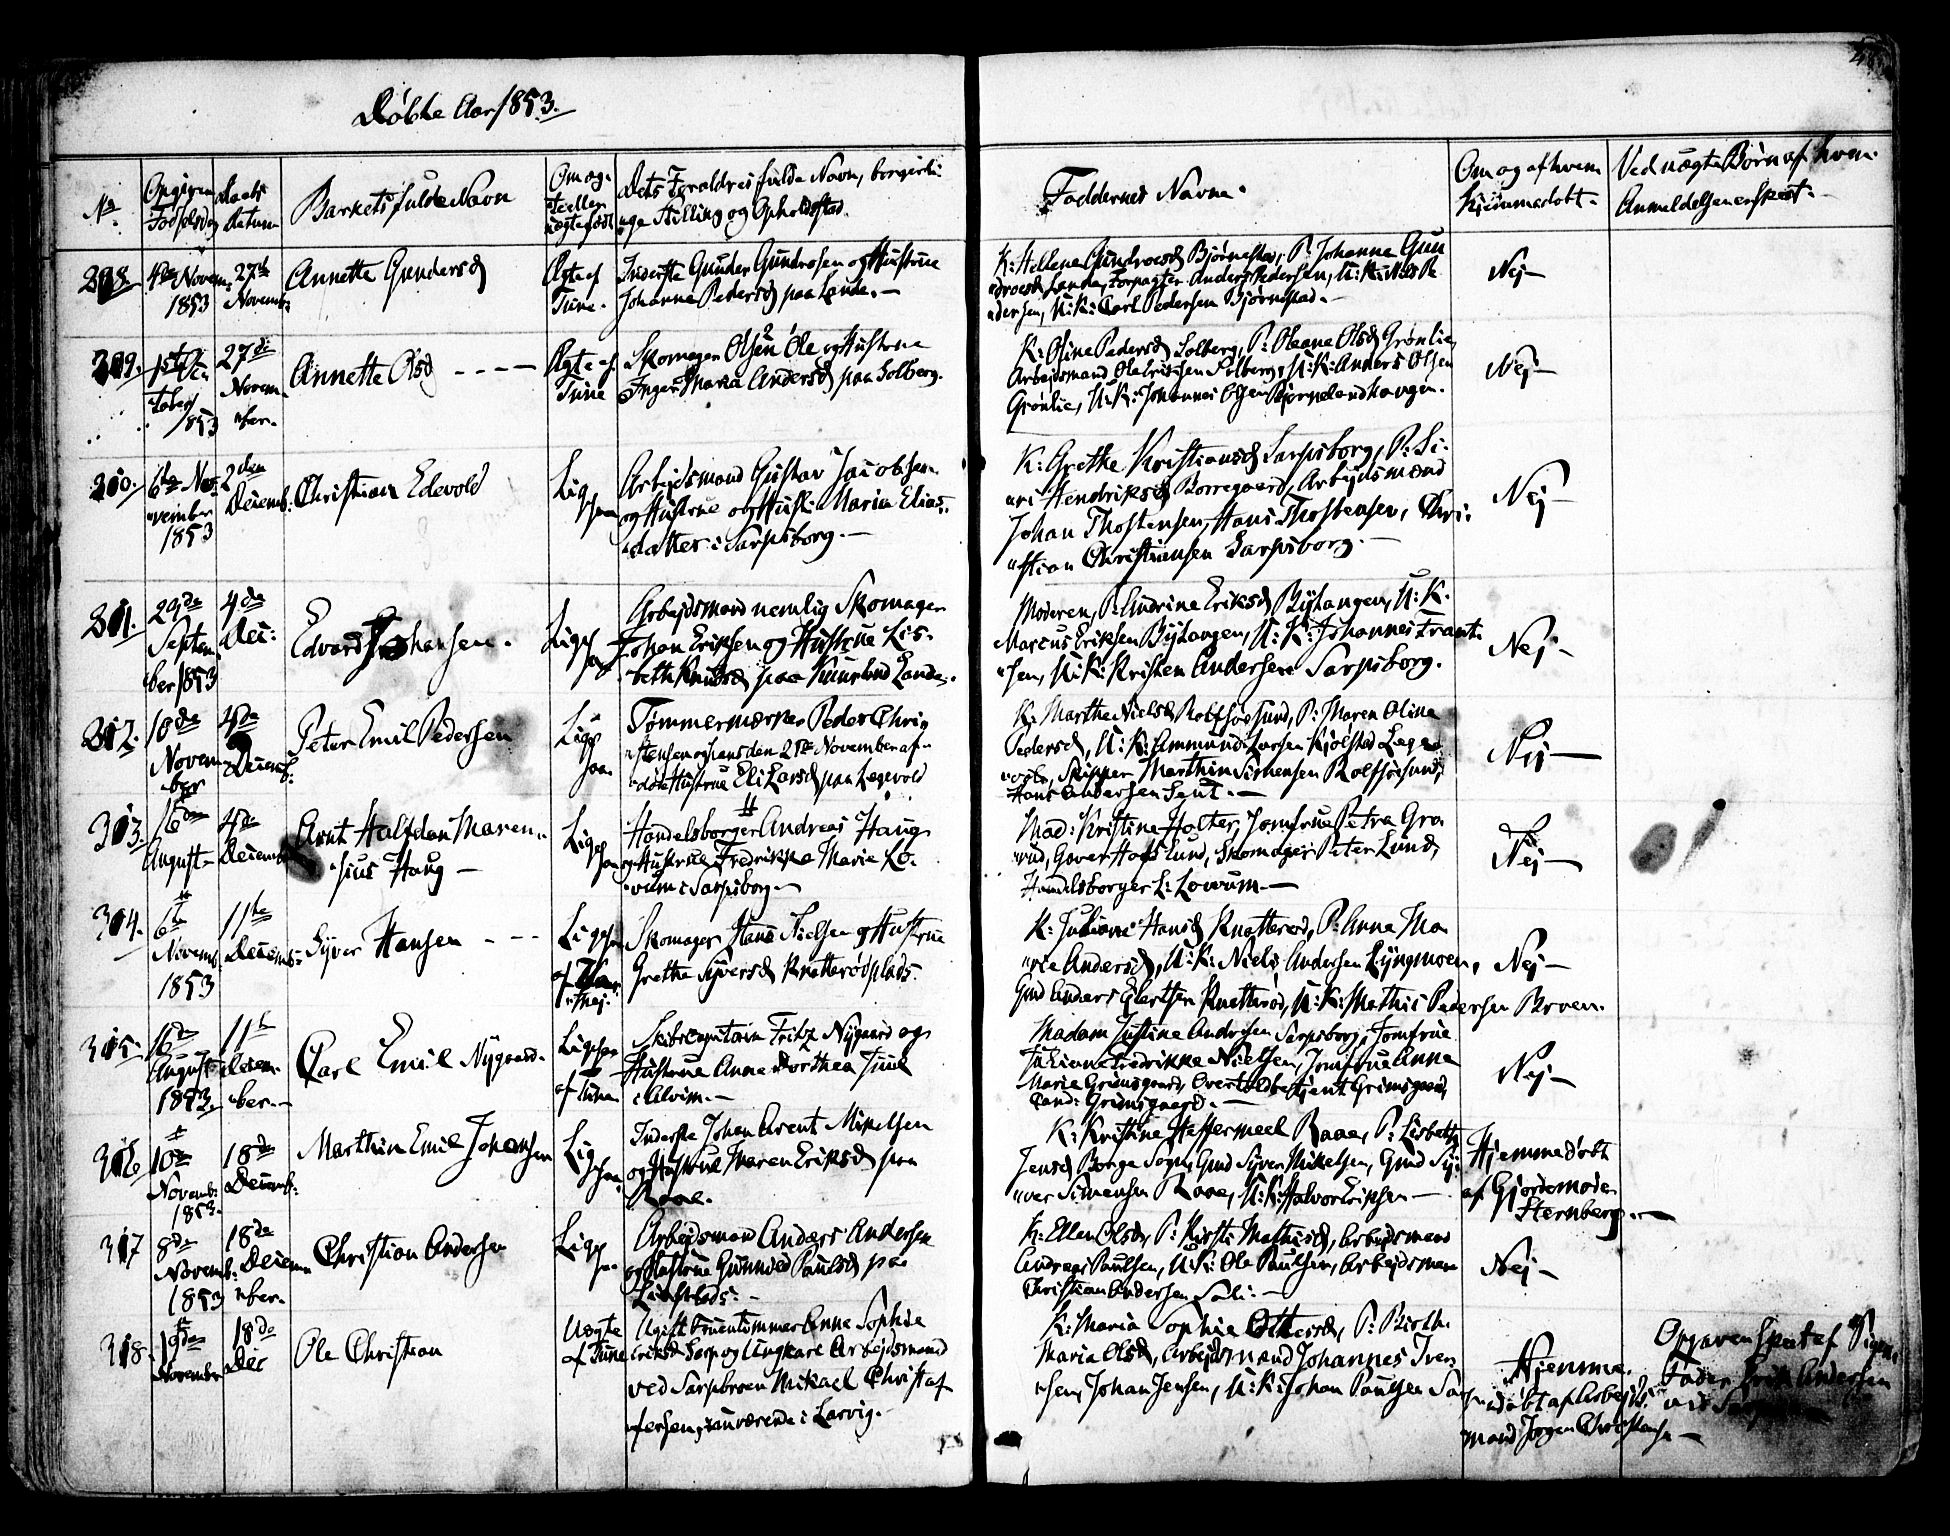 Døbte Aar 1853.
No
Angiven Fødselsdag
Daabs Datum
Barnets fulde Navn
Om ægte eller uægtefødt
Dets Forældres fulde Navn, borgerli-
ge Stilling og Opholdsted.
Faddernes Navne.
Om og af hvem
hjemmedøbt.
Ved uægte Børn af hvem
Anmeldelsen er skeet.
308.
4de Novem:
1853
27de
Novemb:
Annette Gundersd
Ægte af
Tune.
Inderste Gunder Gundrosen og Hustrue
Johanne Pedersd paa Lande.
K: Hellene Gundrosd Bjørnstad, P: Johanne Gun
drosd Lande, Forpagter Anders Pedersen, U: K: Nils Pe
dersen, U: K: Carl Pedersen Bjørnstad.
Nej
309.
1ste Oc-
tober
1853
27de
Novem-
ber.
Annette Olsd
Ægte af
Tune
Skomager Olsen Ole og Hustrue
Inger Maria Andersd paa Solberg.
K: Oline Pedersd Solberg, P: Oleane Olsd Grønlie,
Arbejdsmand Ole Eriksen Solberg, U: K: Anders Olsen
Grønlie, U: K: Johannes Olsen Bjørnelandhaugen.
Nej
310.
6te No-
vember
1853
2den
Decemb:
Christian Edevold
Lige
saa
Arbejdsmand Gustav Jacobsen
og Hustrue og Hust: Maria Elias-
datter i Sarpsborg.
K: Grethe Kristiansd Sarpsborg, P: Si-
ri Hendriksd Borregaard, Arbejdsmænd
Johan Thostensen, Hans Thostensen, Chri-
stian Christiansen Sarpsborg.
Nej
311.
29de
Septem
ber 1853
4de
Dec:
Edvard Johansen.
Lige
saa
Arbejdsmand nemlig Skomager
Johan Eriksen og Hustrue Lis-
beth Knudsd paa Lande.
Moderen, P: Andrine Eriksd Byhangen, U: K.
Marcus Eriksen Byhangen, U: K: Johannes Frant-
sen, U: K: Kristen Andersen Sarpsborg.
Nej
312.
18de
Novem
ber
4de
Decemb:
Peter Emil Pedersen
Lige
saa
Tømmermand Peder Chri-
stensen og hans den 21de November af-
døde Hustrue Eli Larsd paa Legevold
K: Marthe Nielsd Rolfsøesund, P: Maren Oline
Pedersd, U: K: Ammund Larsen Kjølstad Lege-
vold, Skipper Marthin Simensen Rolfsøesund,
Hans Andersen Sent.
Nej
313.
16de
August
4de
Decemb
Arnt Halfdan Maren-
sius Haug
Lige
saa
Handelsborger Andreas Haug
og Hustrue Fredrikke Marie Lo-
vum i Sarpsborg.
Mad: Kristine Holter, Jomfrue Petra Gra
rud, Garver Hafslund, Skomager Peter Lund,
Handelsborger L: Lovum.
Nej
314.
6te
Novemb:
1853
11te
Decemb:
Syver Hansen
Ligesaa
af
Skomager Hans Nielsen og Hustrue
Grethe Syversd Knatterødplads.
K: Juliane Hansd Knatterød, P: Anne Ma
rie Andersd, U: K: Niels Andersen Lyngmoen,
Gmd Anders Ellertsen Knatterød, U: K: Mathis Pedersen Broen.
Nej
315.
16de
August
1853.
11te
Decem-
ber.
Carl Emil Nygaard.
Ligesaa
af Tune
Skibscapitain Fritz Nygaard og
Hustrue Anne Dorthea Juul
i Alvim.
Madam Justine Andersen Sarpsborg, Jomfrue
Juliane Fredrikke Nielsen, Jomfrue Anne
Marie Grimsgaard, Overtoldbetjent Grimsgaard,
Cand: Grimsgaard.
Nej
316
10de
Novemb:
1853.
18de
Decemb:
Marthin Emil Johansen
Lige
saa
Inderste Johan Arent Mikelsen
og Hustrue Maren Eriksd paa
Raae.
K: Kristine Heffermeel Raae, P: Lisbeth
Jensd Borge Sogn, Gmd Syver Mikelsen, Gmd Sy-
ver Simensen Raae, U: K: Halvor Eriksen
Hjemmedøbt
af Gjordemoder
Sternberg.
317
8de
Novemb:
1853
18de
Decem
ber.
Christian Andersen
Lige
saa
Arbejdsmand Anders Andersen
og Hustrue Gunnild Paulsd paa
K: Ellen Olsd, P: Kirsti Mathisd, Arbejdsmand
Andreas Paulsen, U: K: Ole Paulsen, Arbejdsman
Christian Andersen Sali.
Nej
318.
19de
November
18de
Dec
Ole Christian
Uægte
af Tune
Ugift Fruentimmer Anne Sophie
Eriksd Sarp og Ungkarl Arbejdsmand
ved Sarpbroen Mikael Christof
fersen, nuværende i Larvig.
K: Maria Sophie Ottersd, P: Birth
Maria Olsd, Arbejdsmænd Johannes Iver
sen, Johan Jensen, U: K: Johan Paulsen Sar
Hjemme
døbt af Arbejds-
mand Jørgen Christensen
Opgaven skeet af Pigens
Fader Erik Andersen
ved Sarpen